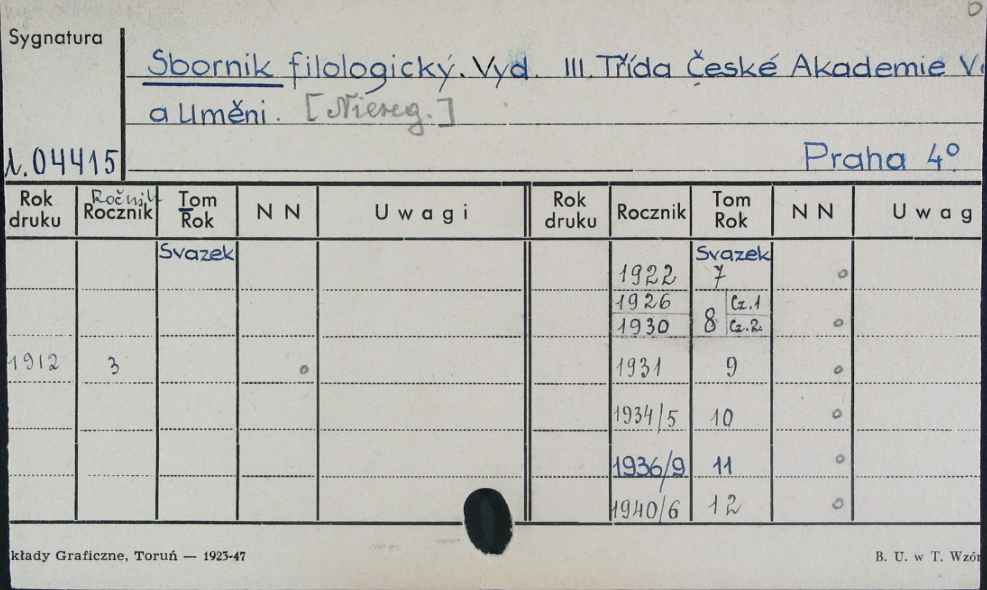 Sygnatura
Sbornik filologický. Vyd. III. Třída České Akademie
a Uměni. [Niereg.]
04415
Praha 4°
Rok druku Ročnik Rocznik Tom Rok N N Uwagi Rok druku Rocznik Tom Rok N N Uwag
Svazek Svazek
1922 7 o
1926 8 Cz.1
1930 Cz.2. o
1912 3 o 1931 9 o
1934/5 10 o
1936/9 11 o
1940/6 12 o
kłady Graficzne, Toruń — 1923-47
B. U. w T. Wzór